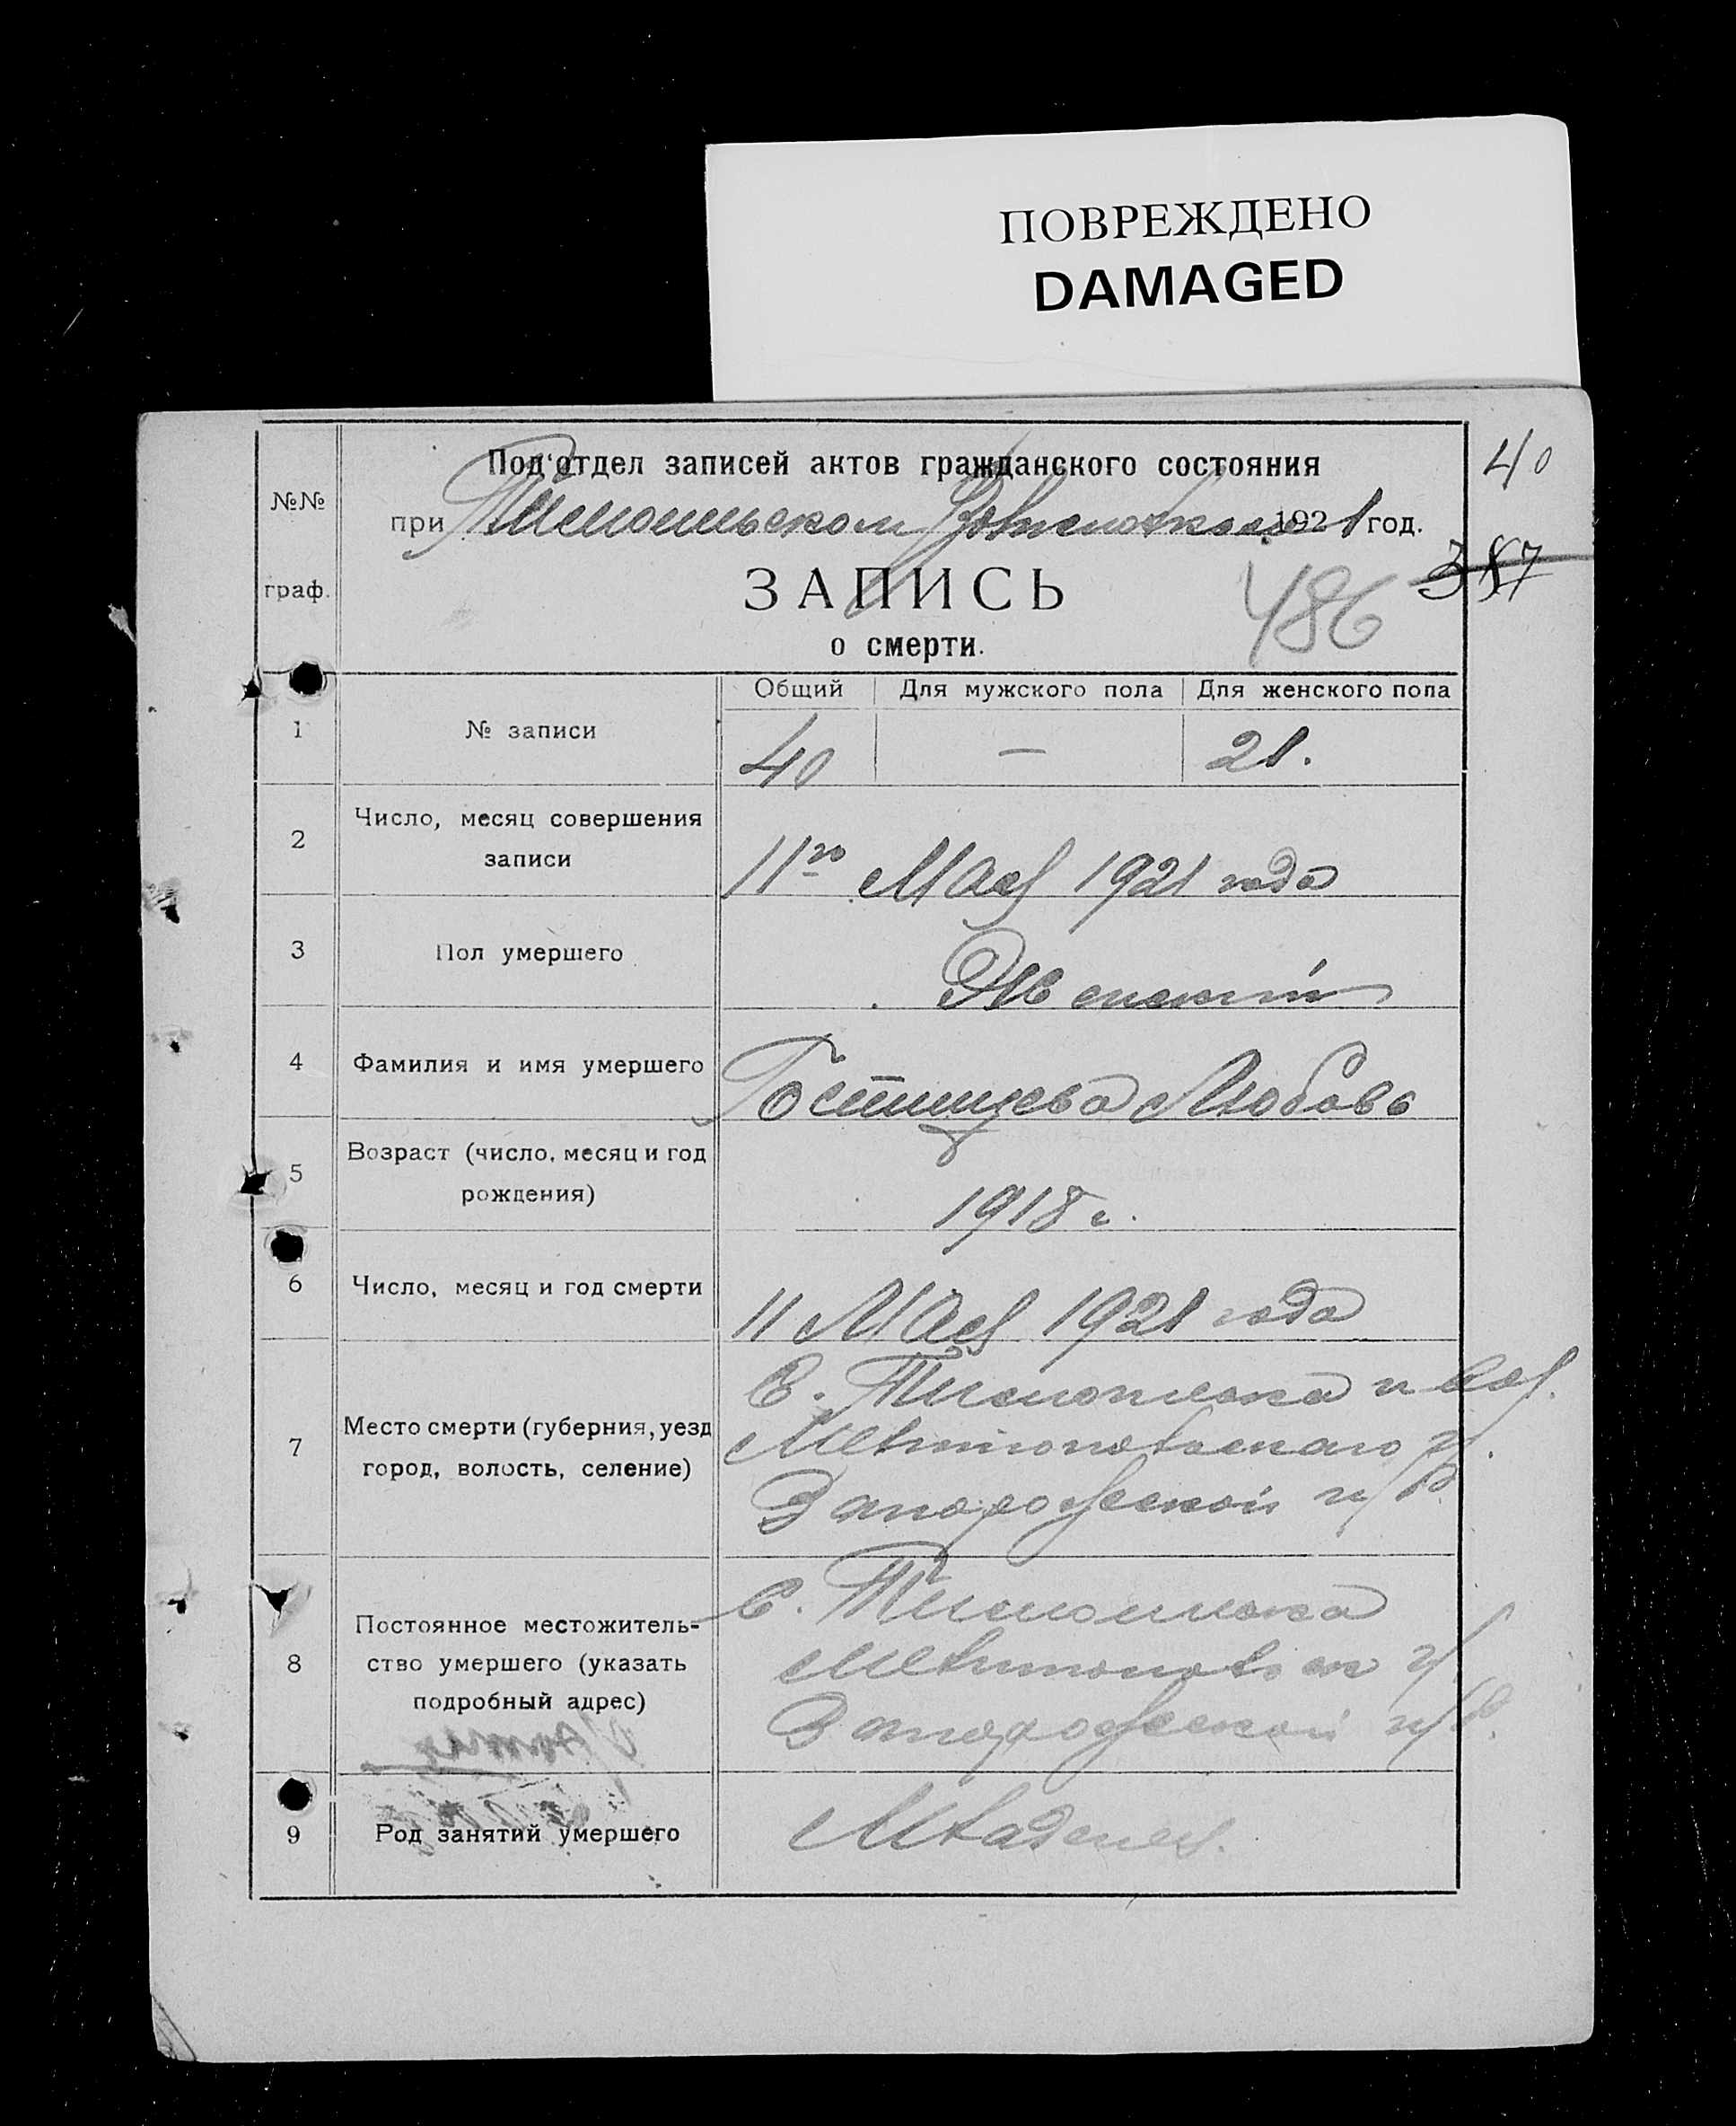 ПОВРЕЖДЕНО
DAMAGED
40
Под'отдел записей актов гражданского состояния
№№
при 1921 год.
387
граф.
ЗАПИСЬ
486
о смерти.
Общий Для мужского пола Для женского пола
1 № записи 40 — 21.
2 Число, месяц совершения
записи
11го Мая 1921 года
3 Пол умершего Женский
4 Фамилия и имя умершего Гостищева Любовь
5 Возраст (число, месяц и год
рождения)
1918 г.
6 Число, месяц и год смерти 11 Мая 1921 года
7 Место смерти (губерния, уезд
город, волость, селение)
С. Тимошовка и вол.
Мелитопольскаго у.
Запорожской губ.
8 Постоянное местожитель-
ство умершего (указать
подробный адрес)
С. Тимошовка
Мелитопольск у
Запорожской губ.
9 Род занятий умершего Младенец.